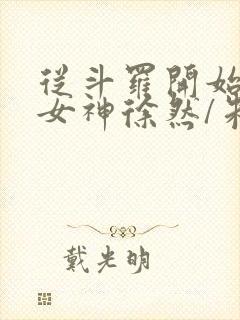 從斗羅開始
女神徐然/
戴光明